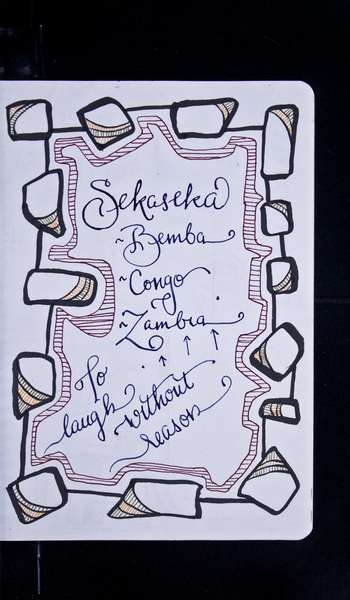 Sekaseka
~Bemba
~Congo
~Zambia
To
laugh without
reason